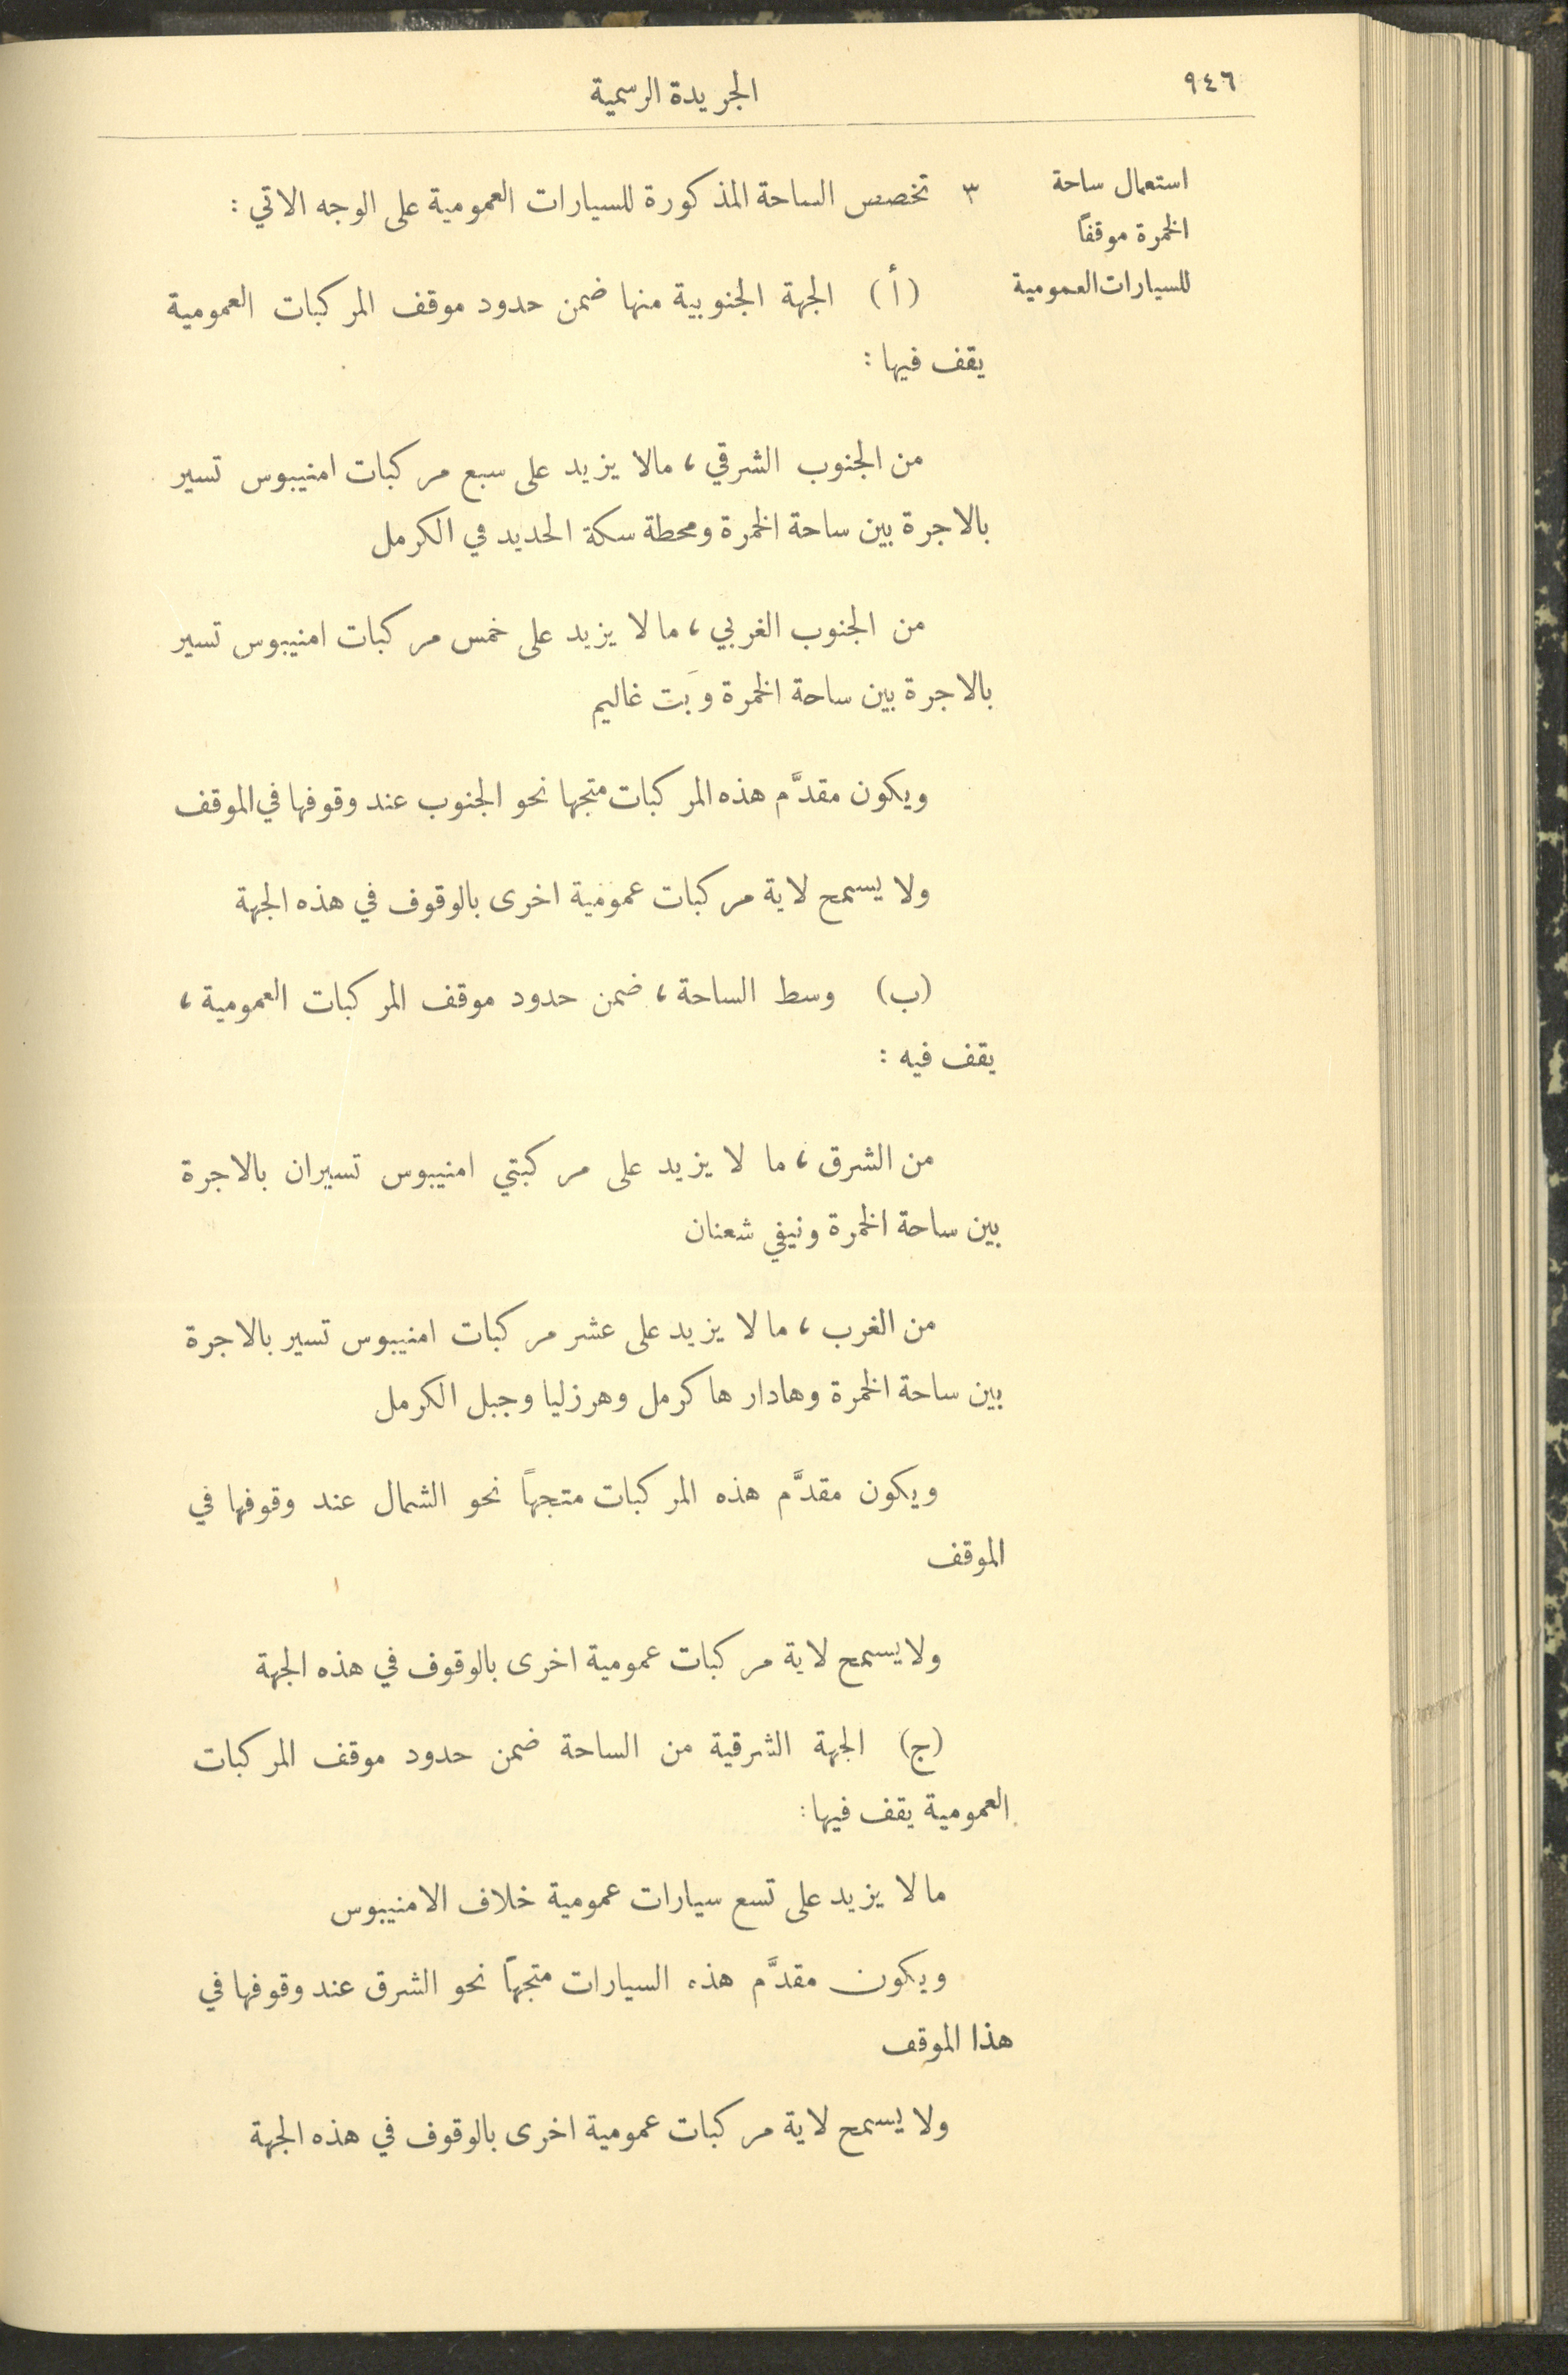 ٩٤٦
الجريدة الرسمية
استعمال ساحة
الخمرة موقفاً
للسيارات العمومية
٣ تخصص الساحة المذكورة للسيارات العمومية على الوجه الاتي :
(أ) الجهة الجنوبية منها ضمن حدود موقف المركبات العمومية
يقف فيها :
من الجنوب الشرقي ، مالا يزيد على سبع مركبات امنيبوس تسير
بالاجرة بين ساحة الخمرة ومحطة سكة الحديد في الكرمل
من الجنوب الغربي ، ما لا يزيد على خمس مركبات امنيبوس تسير
بالاجرة بين ساحة الخمرة وبَت غاليم
ويكون مقدَّم هذه المركبات متجها نحو الجنوب عند وقوفها في الموقف
ولا يسمح لاية مركبات عمومية اخرى بالوقوف في هذه الجهة
(ب) وسط الساحة ، ضمن حدود موقف المركبات العمومية ،
يقف فيه :
من الشرق ، ما لا يزيد على مركبتي امنيبوس تسيران بالاجرة
بين ساحة الخمرة ونيفي شعنان
من الغرب ، ما لا يزيد على عشر مركبات امنيبوس تسير بالاجرة
بين ساحة الخمرة وهادار ها كرمل وهرزليا وجبل الكرمل
ويكون مقدَّم هذه المركبات متجهاً نحو الشمال عند وقوفها في
الموقف
ولا يسمح لاية مركبات عمومية اخرى بالوقوف في هذه الجهة
(ج) الجهة الشرقية من الساحة ضمن حدود موقف المركبات
العمومية يقف فيها :
ما لا يزيد على تسع سيارات عمومية خلاف الامنيبوس
ويكون مقدَّم هذه السيارات متجهاً نحو الشرق عند وقوفها في
هذا الموقف
ولا يسمح لاية مركبات عمومية اخرى بالوقوف في هذه الجهة